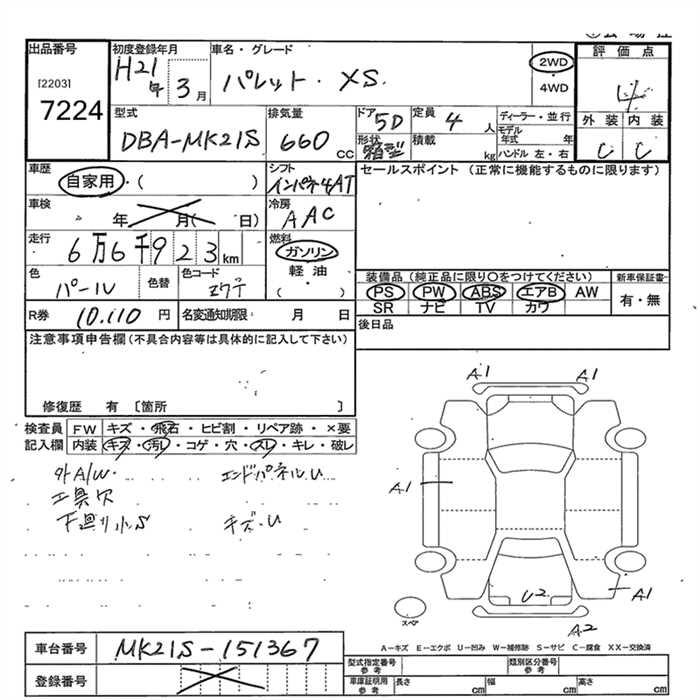 出品番号
[2203]
7224
初度登録年月
H21年 3月
車名・グレード
パレット・XS
2WD
・
4WD
評価点
4
外装 内装
C C
型式
DBA-MK21S
排気量
660 cc
ドア
5D
形状
箱型
定員
4人
積載
kg
ディーラー・並行
モデル年式 年
ハンドル 左・右
車歴
自家用・( )
シフト
インパネ4AT
車検
年 月( 日)
冷房
AAC
走行
6万6千923km
燃料
ガソリン
軽油
( )
色
パール
色替
色コード
R券 10.110円
名変通知期限: 月 日
セールスポイント (正常に機能するものに限ります)
装備品 (純正品に限り○をつけてください)
新車保証書
PS PW ABS エアB AW
SR ナビ TV カワ
有・無
後日品
注意事項申告欄(不具合内容等は具体的に記入して下さい)
修復歴 有 〔箇所 〕
検査員記入欄
FW キズ・飛石・ヒビ割・リペア跡・×要
内装 キズ・汚レ・コゲ・穴・スレ・キレ・破レ
外A/W エンドパネルU
工具欠
下廻り小S キズ・U
A1 A1
A1
A1
U2
A2
スペア
A-キズ E-エクボ U-凹み W-補修跡 S-サビ C-腐食 XX-交換済
車台番号 MK21S-151367
登録番号
型式指定番号 参考
類別区分番号 参考
車庫証明用 参考
長さ cm 幅 cm 高さ cm